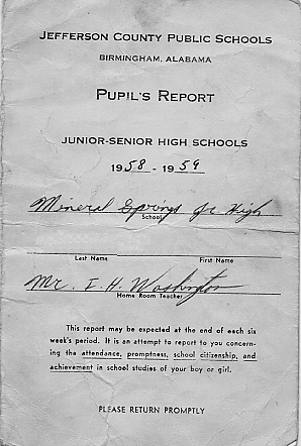 JEFFERSON COUNTY PUBLIC SCHOOLS
BIRMINGHAM, ALABAMA
PUPIL'S REPORT
JUNIOR-SENIOR HIGH SCHOOLS
1958 - 1959
Mineral Springs Jr High
School
Last Name First Name
Mr. I. H. Washington
Home Room Teacher
This report may be expected at the end of each six
week's period. It is an attempt to report to you concern-
ing the attendance, promptness, school citizenship, and
achievement in school studies of your boy or girl.
PLEASE RETURN PROMPTLY